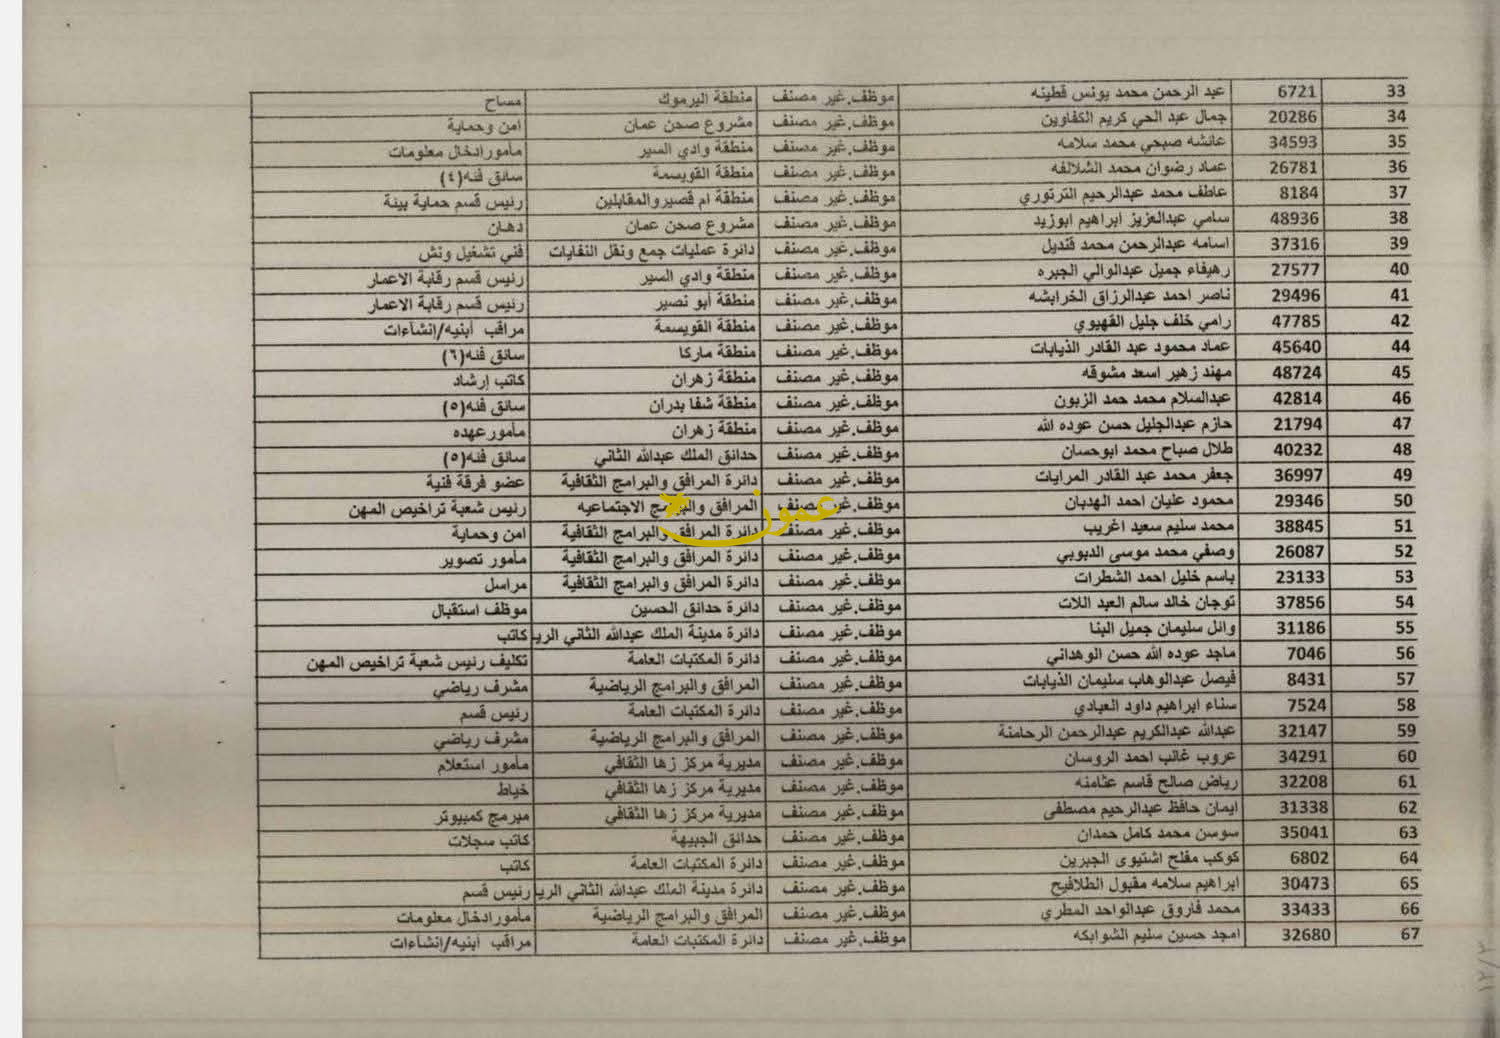 33 6721 عبد الرحمن محمد يونس قطينه موظف.غير مصنف منطقة اليرموك مساح
34 20286 جمال عبد الحي كريم الكفاوين موظف.غير مصنف مشروع صحن عمان امن وحماية
35 34593 عائشه صبحي محمد سلامه موظف.غير مصنف منطقة وادي السير مأمورادخال معلومات
36 26781 عماد رضوان محمد الشلالفه موظف.غير مصنف منطقة القويسمة سائق فئه(٤)
37 8184 عاطف محمد عبدالرحيم الترتوري موظف.غير مصنف منطقة ام قصيروالمقابلين رئيس قسم حماية بيئة
38 48936 سامي عبدالعزيز ابراهيم ابوزيد موظف.غير مصنف مشروع صحن عمان دهان
39 37316 اسامه عبدالرحمن محمد قنديل موظف.غير مصنف دائرة عمليات جمع ونقل النفايات فني تشغيل ونش
40 27577 رهيفاء جميل عبدالوالي الجبره موظف.غير مصنف منطقة وادي السير رئيس قسم رقابة الاعمار
41 29496 ناصر احمد عبدالرزاق الخرابشه موظف.غير مصنف منطقة أبو نصير رئيس قسم رقابة الاعمار
42 47785 رامي خلف جليل القهيوي موظف.غير مصنف منطقة القويسمة مراقب أبنيه/إنشآءات
44 45640 عماد محمود عبد القادر الذيابات موظف.غير مصنف منطقة ماركا سائق فئه(٦)
45 48724 مهند زهير اسعد مشوقه موظف.غير مصنف منطقة زهران كاتب إرشاد
46 42814 عبدالسلام محمد حمد الزبون موظف.غير مصنف منطقة شفا بدران سائق فئه(٥)
47 21794 حازم عبدالجليل حسن عوده الله موظف.غير مصنف منطقة زهران مأمورعهده
48 40232 طلال صباح محمد ابوحسان موظف.غير مصنف حدائق الملك عبدالله الثاني سائق فئه(٥)
49 36997 جعفر محمد عبد القادر المرايات موظف.غير مصنف دائرة المرافق والبرامج الثقافية عضو فرقة فنية
50 29346 محمود عليان احمد الهدبان موظف.غير مصنف المرافق والبرامج الاجتماعيه رئيس شعبة تراخيص المهن
عمون
51 38845 محمد سليم سعيد اغريب موظف.غير مصنف دائرة المرافق والبرامج الثقافية امن وحماية
52 26087 وصفي محمد موسى الدبوبي موظف.غير مصنف دائرة المرافق والبرامج الثقافية مأمور تصوير
53 23133 باسم خليل احمد الشطرات موظف.غير مصنف دائرة المرافق والبرامج الثقافية مراسل
54 37856 توجان خالد سالم العبد اللات موظف.غير مصنف دائرة حدائق الحسين موظف استقبال
55 31186 وائل سليمان جميل البنا موظف.غير مصنف دائرة مدينة الملك عبدالله الثاني الريا كاتب
56 7046 ماجد عوده الله حسن الوهداني موظف.غير مصنف دائرة المكتبات العامة تكليف رئيس شعبة تراخيص المهن
57 8431 فيصل عبدالوهاب سليمان الذيابات موظف.غير مصنف المرافق والبرامج الرياضية مشرف رياضي
58 7524 سناء ابراهيم داود العبادي موظف.غير مصنف دائرة المكتبات العامة رئيس قسم
59 32147 عبدالله عبدالكريم عبدالرحمن الرحامنة موظف.غير مصنف المرافق والبرامج الرياضية مشرف رياضي
60 34291 عروب غالب احمد الروسان موظف.غير مصنف مديرية مركز زها الثقافي مأمور استعلام
61 32208 رياض صالح قاسم عثامنه موظف.غير مصنف مديرية مركز زها الثقافي خياط
62 31338 ايمان حافظ عبدالرحيم مصطفى موظف.غير مصنف مديرية مركز زها الثقافي مبرمج كمبيوتر
63 35041 سوسن محمد كامل حمدان موظف.غير مصنف حدائق الجبيهة كاتب سجلات
64 6802 كوكب مفلح اشتيوى الجبرين موظف.غير مصنف دائرة المكتبات العامة كاتب
65 30473 ابراهيم سلامه مقبول الطلافيح موظف.غير مصنف دائرة مدينة الملك عبدالله الثاني الريا رئيس قسم
66 33433 محمد فاروق عبدالواحد المطري موظف.غير مصنف المرافق والبرامج الرياضية مأمورادخال معلومات
67 32680 امجد حسين سليم الشوابكه موظف.غير مصنف دائرة المكتبات العامة مراقب أبنيه/إنشآءات
١٢/٣